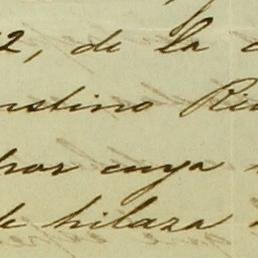 2, de la
ustino
por cuya
de hilaza